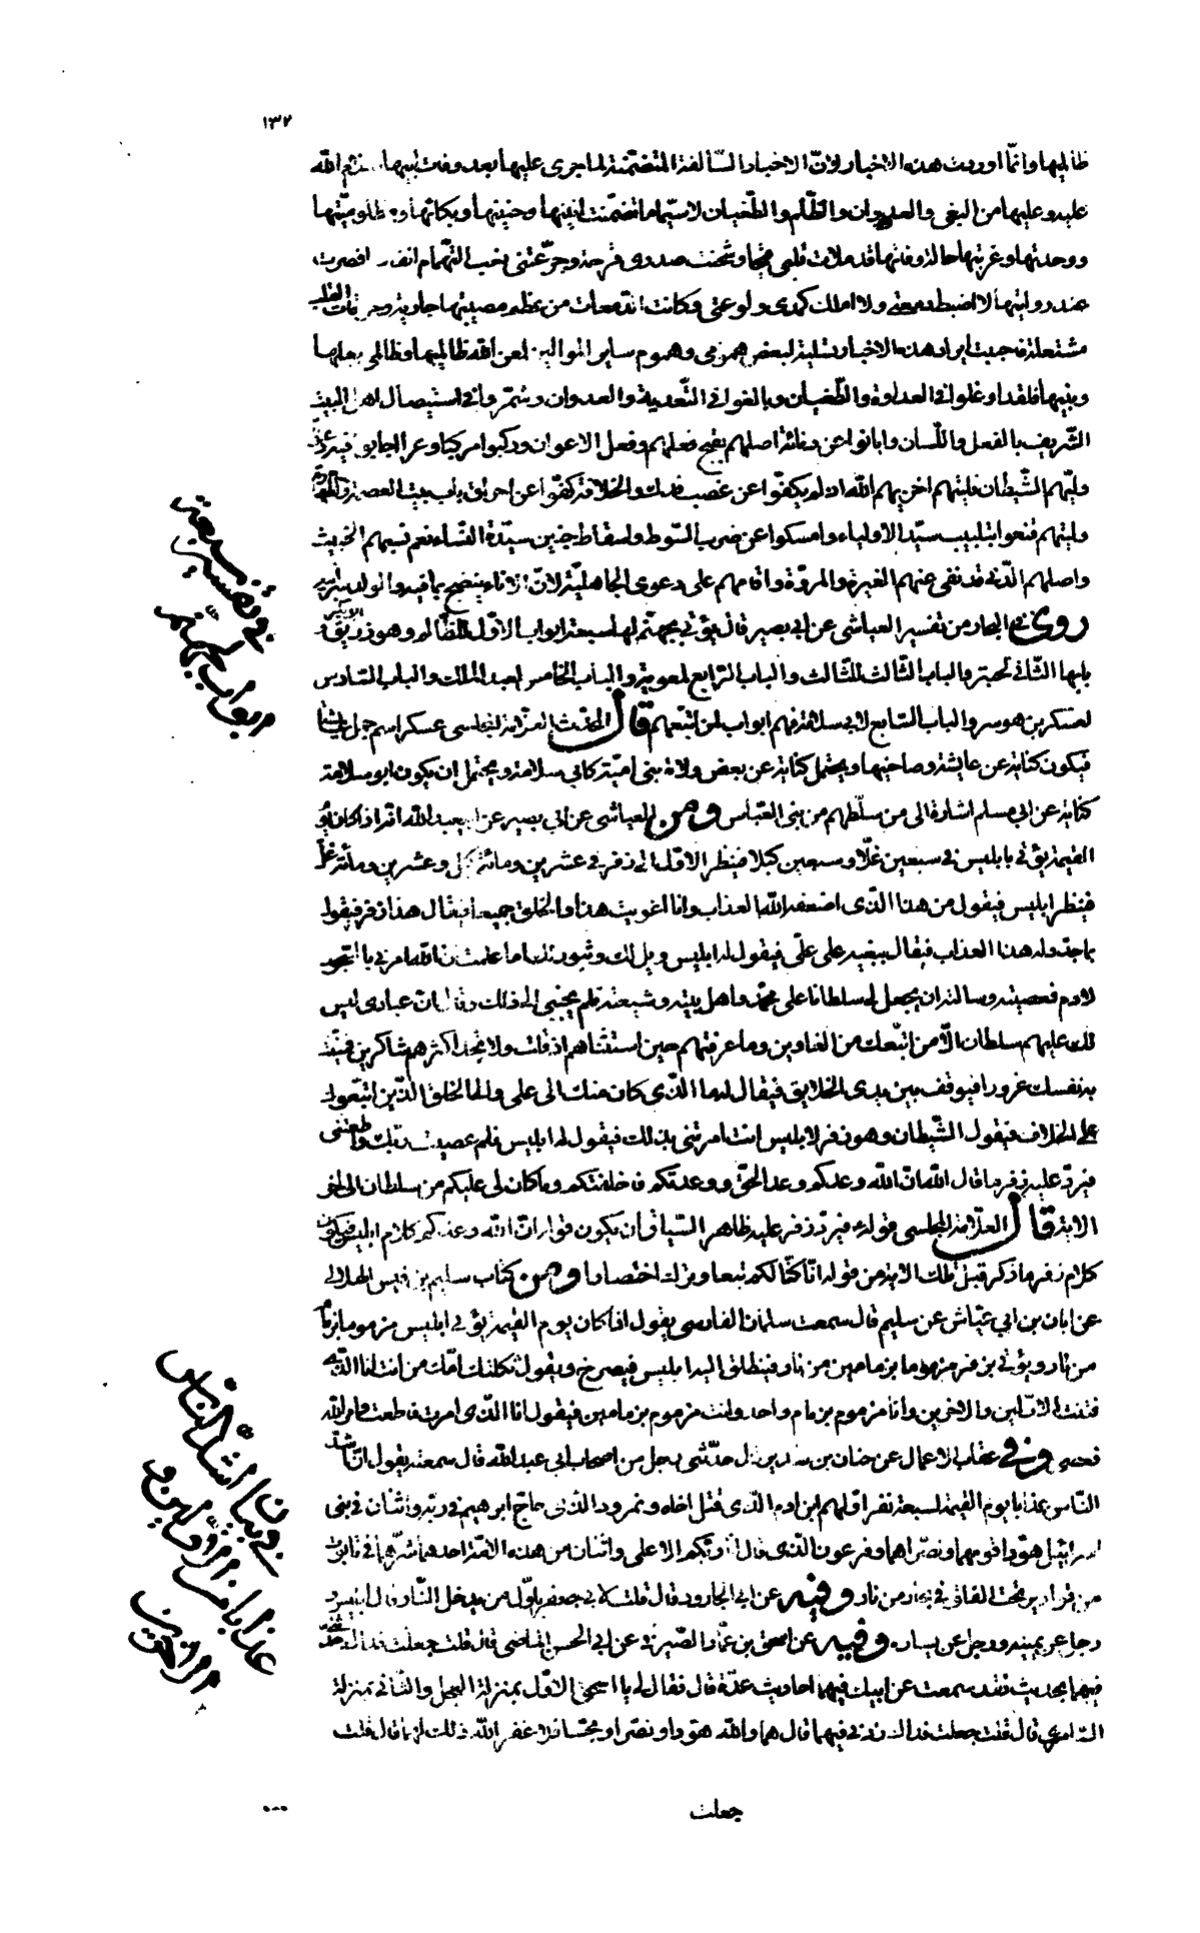 ١٣٧
ظالميها وانما اوردت هذه الاخبار لانّ الاخبار السّالفة المتضمّنة لما جرى عليها بعد وفات ابيها
عليه وعليها من البغى والعدوان والظّلم والطّغيان لاسيّما ما تضمّنت انينها وحنينها وبكائها ومظلوميّتها
ووحدتها وغربتها حالة وفاتها قد ملات قلبى وشحنت صدرى وجرّعتنى
عند روايتها لا اضبط دمعتى ولا املك كمدى ولوعتى وكانت الدمعات من عظم مصيبتها جارية وحرقات القلب
مشتعلة فاحببت ايراد هذه الاخبار تسلية لبعض همومى وهموم ساير الموالين لعن الله ظالميها وظالمى بعلها
وبنيها فلقد اوغلوا فى العداوة والطّغيان وبالغوا فى التّعدية والعدوان وشمّروا فى استيصال اهل البيت
الشّريف بالفعل واللّسان وابانوا عن دنائة اصلهم بقبح فعلهم وفعل الاعوان وركبوا مركبا
وليّهم الشّيطان فليتهم اخزيهم الله اذ لم يكفّوا عن غصب فدك والخلافة كفّوا عن احراق باب بيت العصمة والطهارة
وليتهم قنعوا بتلبيب سيّد الاولياء وامسكوا عن ضرب السّوط واسقاط جنين سيّدة النّساء نعم نسبهم الخبيث
واصلهم الّذى قد نفى عنهم الغيرة والمروّة واقامهم على دعوى الجاهليّة لانّ الاناء ينضح بما فيه والولد سرّ ابيه
روى فى البحار من تفسير العياشى عن ابى بصير قال يؤتى بجهنّم لها سبعة ابواب بابها الاوّل للظّالم وهو زريق و
بابها الثّانى لحبتر والباب الثّالث للثّالث والباب الرّابع لمعوية والباب الخامس لعبد الملك والباب السّادس
لعسكر بن هوسر والباب السّابع لابى سلامة فهم ابواب لمن اتّبعهم قال المحدّث العلّامة المجلسى عسكر اسم جمل عايشة
فيكون كناية عن عايشة وصاحبها ويحتمل كناية عن بعض ولاة بنى اميّة كابى سلامة ويحتمل ان يكون ابو سلامة
كناية عن ابى مسلم اشارة الى من سلّطهم من بنى العبّاس ومن العياشى عن ابى بصير عن ابيعبد الله انه اذا كان يوم
القيمة يؤتى بابليس فى سبعين غلّا وسبعين كبلا فينظر الاوّل الى زفر فى عشرين ومائة كبل وعشرين ومائة غلّ
فينظر ابليس فيقول من هذا الّذى اضعفه الله العذاب وانا اغويت هذا والخلق جميعا فيقال هذا زفر فيقول
بما حدّد له هذا العذاب فيقال ببغيه على علىّ فيقول له ابليس ويل لك وثبور لك اما علمت انّ الله امرنى بالسّجود
لادم فعصيته وسالته ان يجعل لى سلطانا على محمّد واهل بيته وشيعته فلم يجبنى الى ذلك وقال انّ عبادى ليس
لك عليهم سلطان الّا من اتّبعك من الغاوين وما عرفتهم حين استثناهم اذ قلت ولا تجد اكثرهم شاكرين فمنّتك
به نفسك غرورا فيوقف بين يدى الخلايق فيقال له ما الّذى كان منك الى على والى الخلق الّذين اتّبعوك
على الخلاف فيقول الشّيطان وهو زفر لابليس انت امرتنى بذلك فيقول له ابليس فلم عصيت ربّك واطعتنى
فيردّ عليه زفر ما قال الله انّ الله وعدكم وعد الحقّ ووعدتكم فاخلفتكم وما كان لى عليكم من سلطان الى اخر
الاية قال العلّامة المجلسى قوله فيردّ زفر عليه ظاهر السّياق ان يكون قوله انّ الله وعدكم كلام ابليس فيكون
كلام زفر ما ذكر قبل تلك الاية من قوله انّا كنّا لكم تبعا وترك اختصارا ومن كتاب سليم بن قيس الهلالى
عن ابان بن ابى عيّاش عن سليم قال سمعت سلمان الفارسى يقول اذا كان يوم القيمة يؤتى ابليس مزموما بزمام
من نار ويؤتى بزفر مزموما بزمامين من نار فينطلق اليه ابليس فيصرخ ويقول ثكلتك امّك من انت انا الّذى
فتنت الاوّلين والاخرين وانا مزموم بزمام واحد وانت مزموم بزمامين فيقول انا الّذى امرت فاطعت وامر الله
فعصى وفى عقاب الاعمال عن حنان بن سدير قال حدّثنى رجل من اصحاب ابى عبد الله قال سمعته يقول انّ اشدّ
النّاس عذابا يوم القيمة لسبعة نفر اوّلهم ابن ادم الّذى قتل اخاه ونمرود الّذى حاجّ ابرهيم فى ربّه واثنان فى بنى
اسرائيل هوّدا قومهما ونصّراهما وفرعون الّذى قال انا ربّكم الاعلى واثنان من هذه الامّة احدهما شرّهما فى تابوت
من قوارير تحت الفلق فى بحار من نار وفيه عن ابى الجارود قال قلت لابى جعفر اوّل من يدخل النّار قال ابليس و
رجل عن يمينه ورجل عن يساره وفيه عن اسحق بن عمّار الصّيرفى عن ابى الحسن الماضى قال قلت جعلت فداك حدّثنى
فيهما بحديث فقد سمعت عن ابيك فيهما احاديث عدّة قال فقال لى يا اسحق الاوّل بمنزلة العجل والثّانى بمنزلة
السّامرى قال قلت جعلت فداك زدنى فيهما قال هما والله هوّدا ونصّرا ومجّسا فلا غفر الله ذلك لهما قال قلت
جعلت
فى تفسير سبعة
ابواب جهنّم
فى بيان اشدّ النّاس
عذابا من الاوّلين و
الاخرين